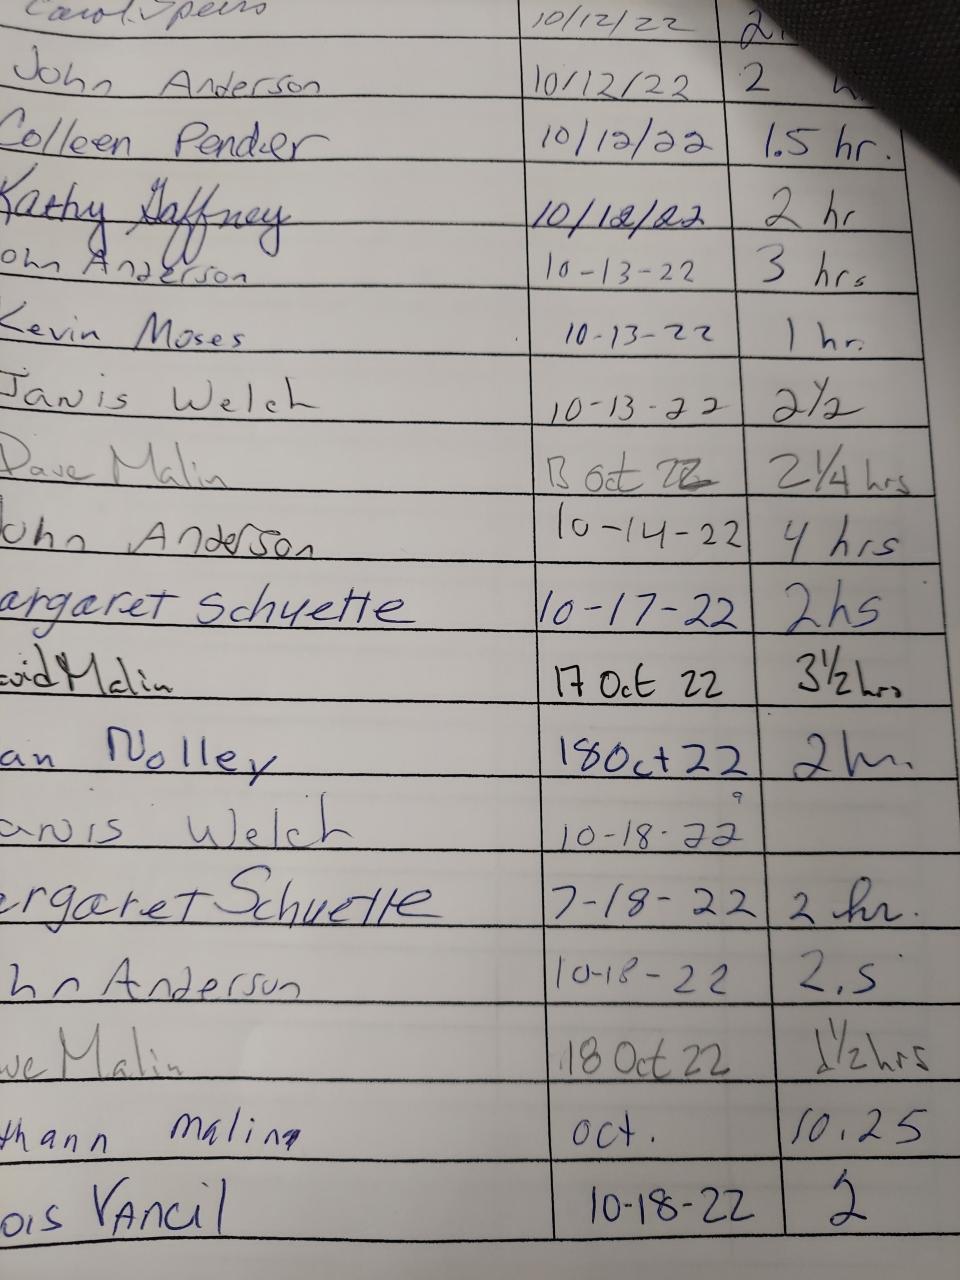 Carol Spens 10/12/22 2
John Anderson 10/12/22 2 h
Colleen Pender 10/12/22 1.5 hr.
Kathy Gaffney 10/12/22 2 hr
ohn Anderson 10-13-22 3 hrs
Kevin Moses 10-13-22 1 hr.
Janis Welch 10-13-22 2½
Dave Malin 13 Oct 22 2 ¼ hrs
John Anderson 10-14-22 4 hrs
argaret Schuette 10-17-22 2 hs
avid Malin 17 Oct 22 3½ hrs
an Nolley 18 Oct 22 2 hr.
anis Welch 10-18-22
argaret Schuette 7-18-22 2 hr.
hn Anderson 10-18-22 2.5
ave Malin 18 Oct 22 1½ hrs
thann Malin oct. 10.25
ois Vancil 10-18-22 2